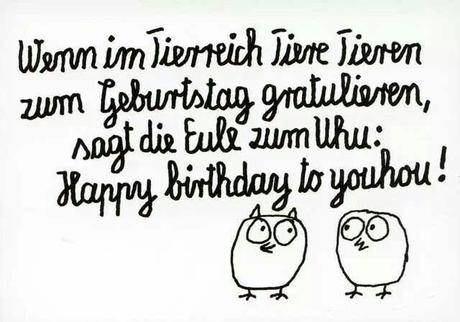 Wenn im Tierreich Tiere Tieren
zum Geburtstag gratulieren,
sagt die Eule zum Uhu:
Happy birthday to youhou!